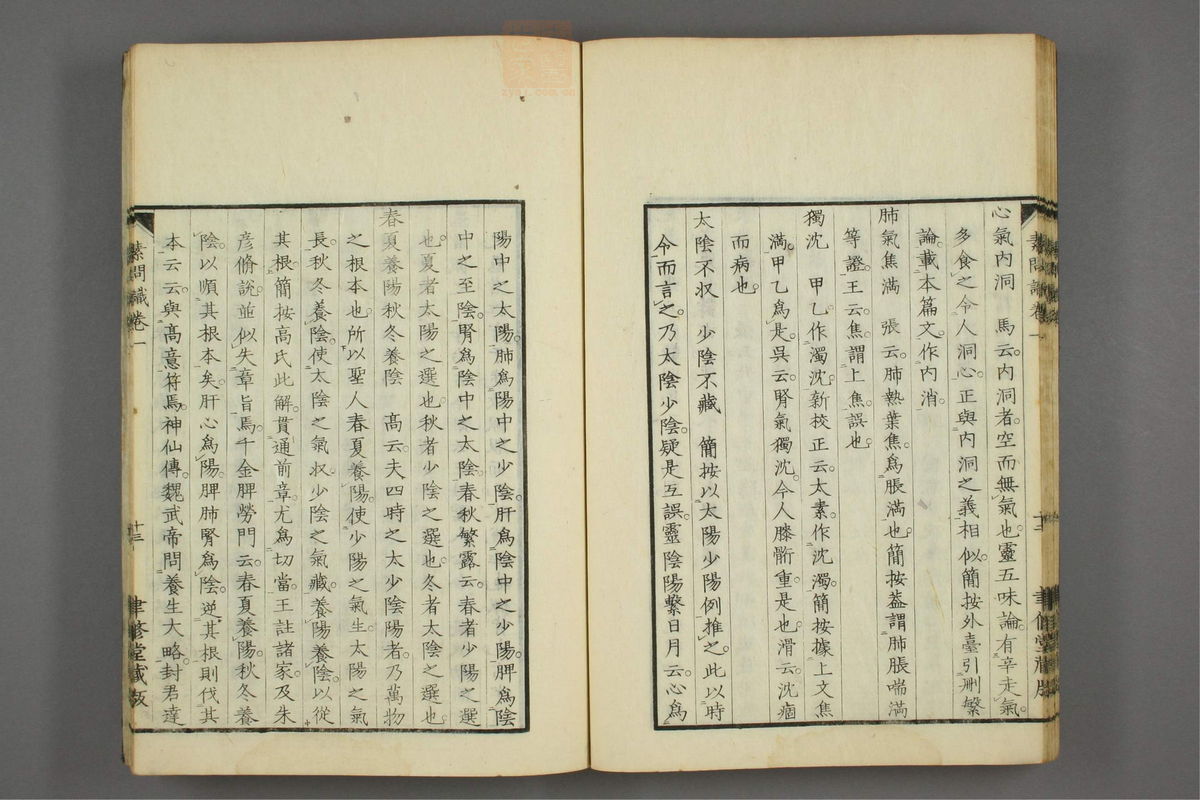 心氣內洞　馬云內洞者空而無氣也靈五味論有辛走氣
多食之令人洞心正與內洞之義相似簡按外臺引刪繁
論載本篇文作內消
肺氣焦滿　張云肺熱葉焦爲脹滿也簡按蓋謂肺脹喘滿
等證王云焦謂上焦誤也
獨沈　甲乙作濁沈新校正云太素作沈濁簡按據上文焦
滿甲乙爲是吳云腎氣獨沈令人膝䯒重是也滑云沈痼
而病也
太陰不収　少陰不藏　簡按以太陽少陽例推之此以時
令而言之乃太陰少陰疑是互誤靈陰陽繫日月云心爲
素問識卷一
十二
聿修堂藏版
陽中之太陽肺爲陽中之少陰肝爲陰中之少陽脾爲陰
中之至陰腎爲陰中之太陰春秋繁露云春者少陽之選
也夏者太陽之選也秋者少陰之選也冬者太陰之選也
春夏養陽秋冬養陰　高云夫四時之太少陰陽者乃萬物
之根本也所以聖人春夏養陽使少陽之氣生太陽之氣
長秋冬養陰使太陰之氣収少陰之氣藏養陽養陰以從
其根簡按高氏此解貫通前章尤爲切當王註諸家及朱
彥脩說並似失章旨焉千金脾勞門云春夏養陽秋冬養
陰以順其根本矣肝心爲陽脾肺腎爲陰逆其根則伐其
本云云與高意符焉神仙傳魏武帝問養生大略封君達
素問識卷一
十三
聿修堂藏版